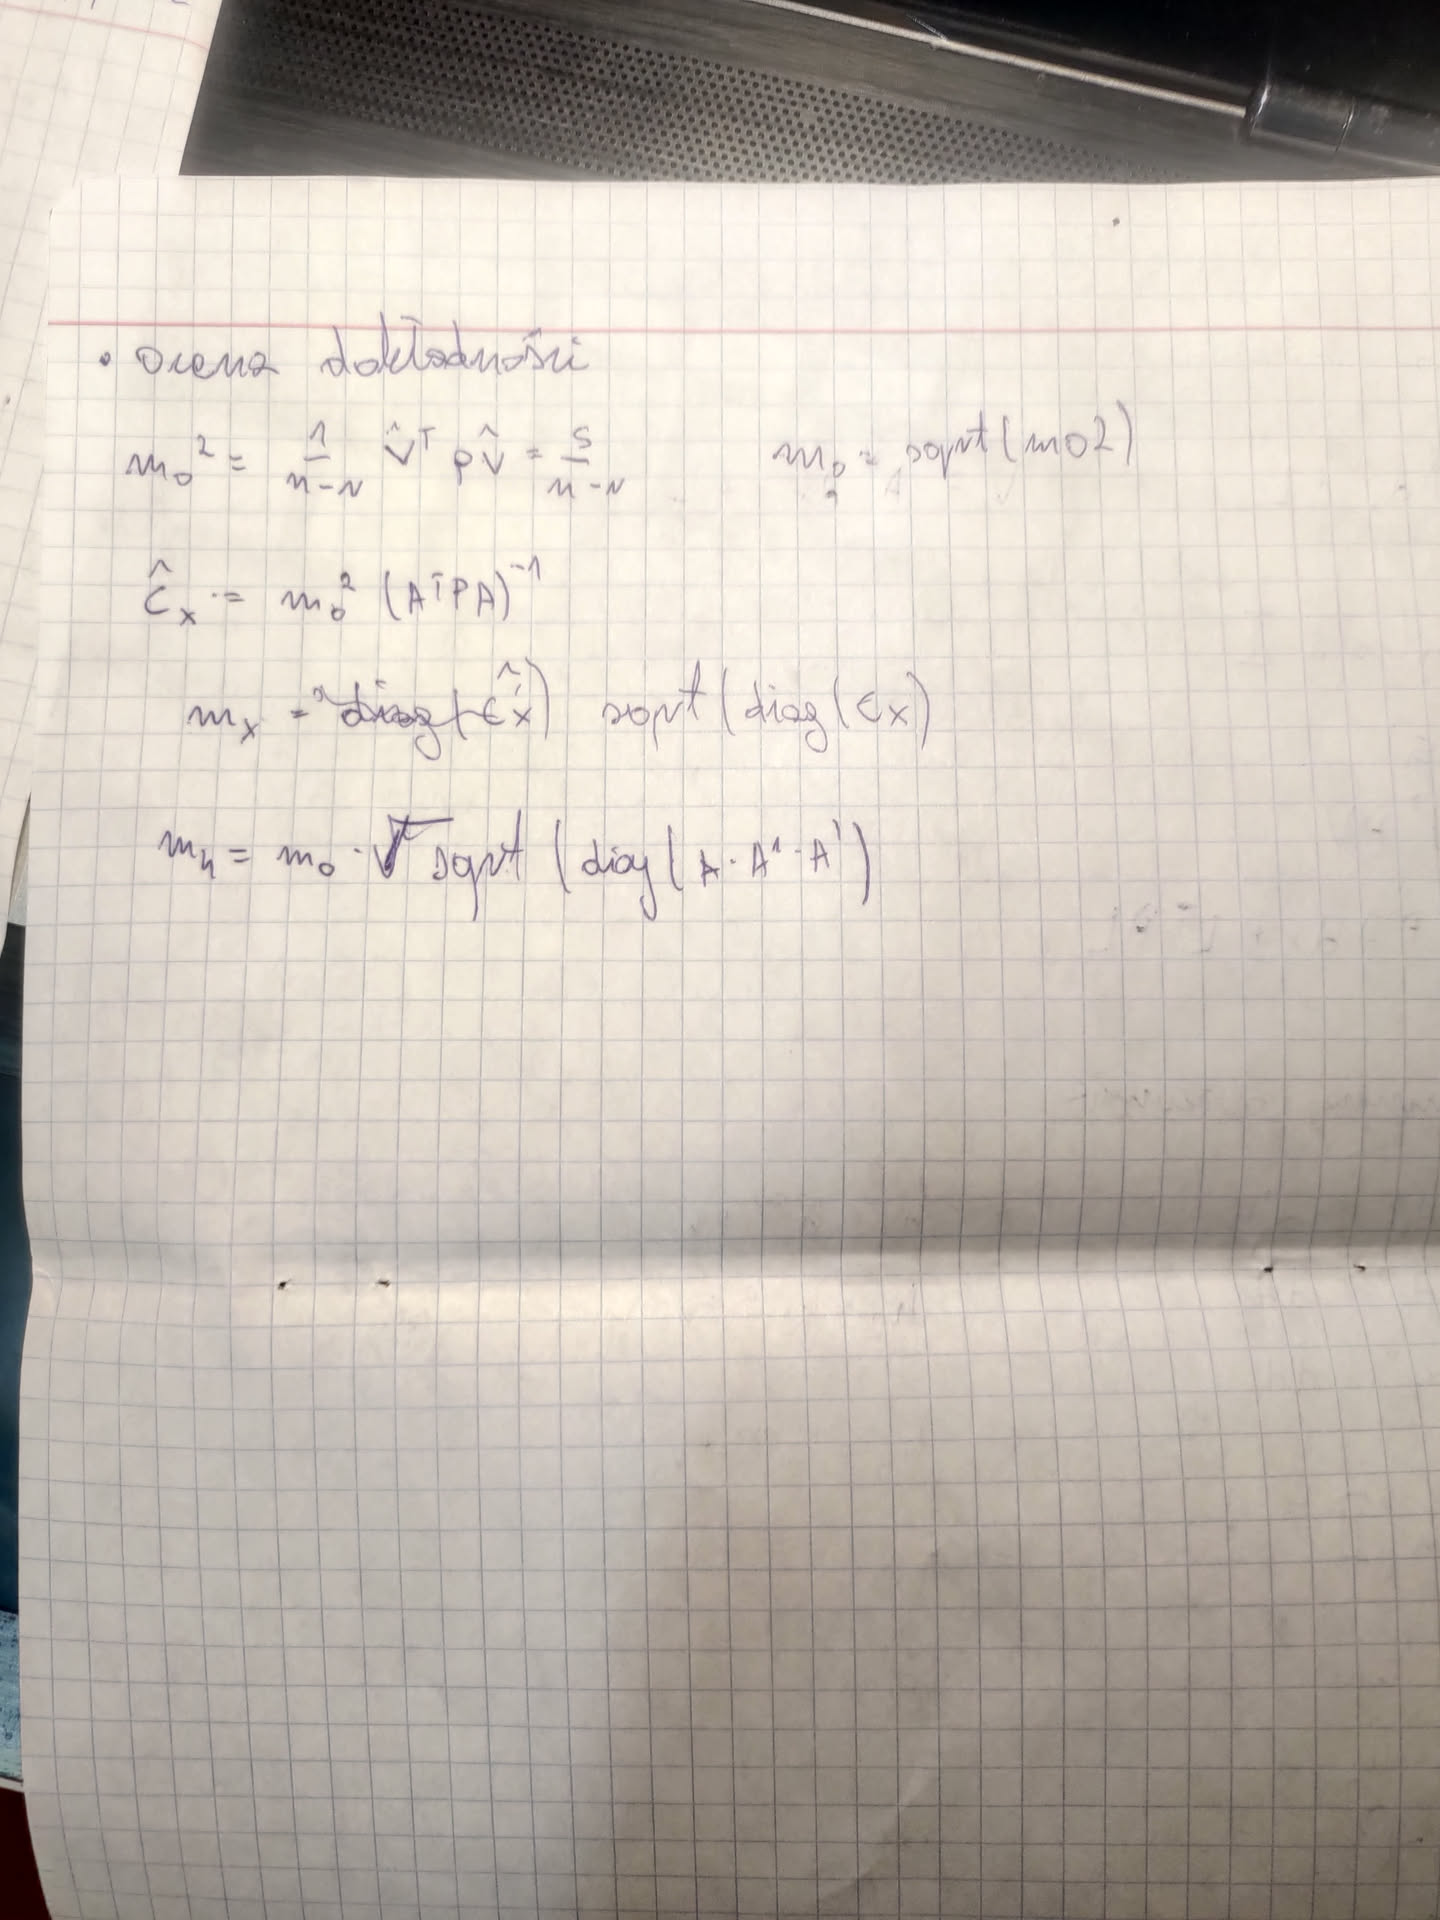 • ocena dokładności
m₀² = 1/(n-r) v̂ᵀ p v̂ = s/(n-r) m₀ = sqrt(m02)
Ĉₓ = m₀² (AᵀPA)⁻¹
mₓ = diag(Ĉx̂) sqrt(diag(Cx)
m = m₀ · √ sqrt (diag(A · A¹ · A')